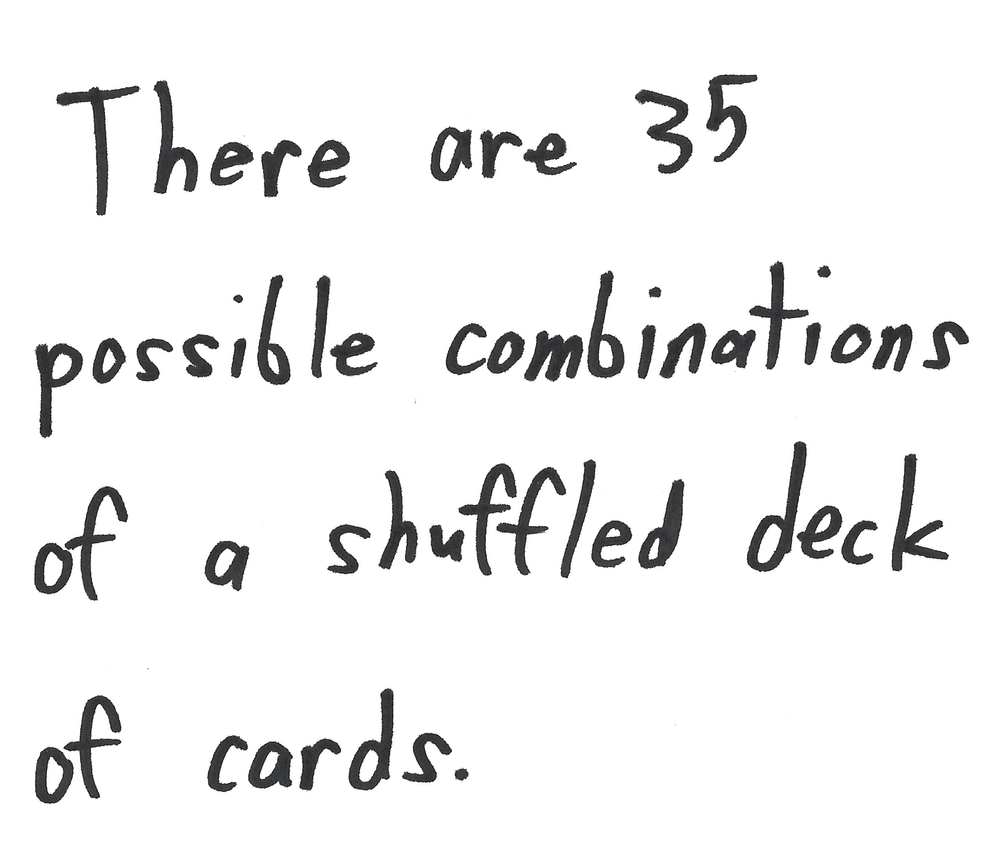 There are 35
possible combinations
of a shuffled deck
of cards.